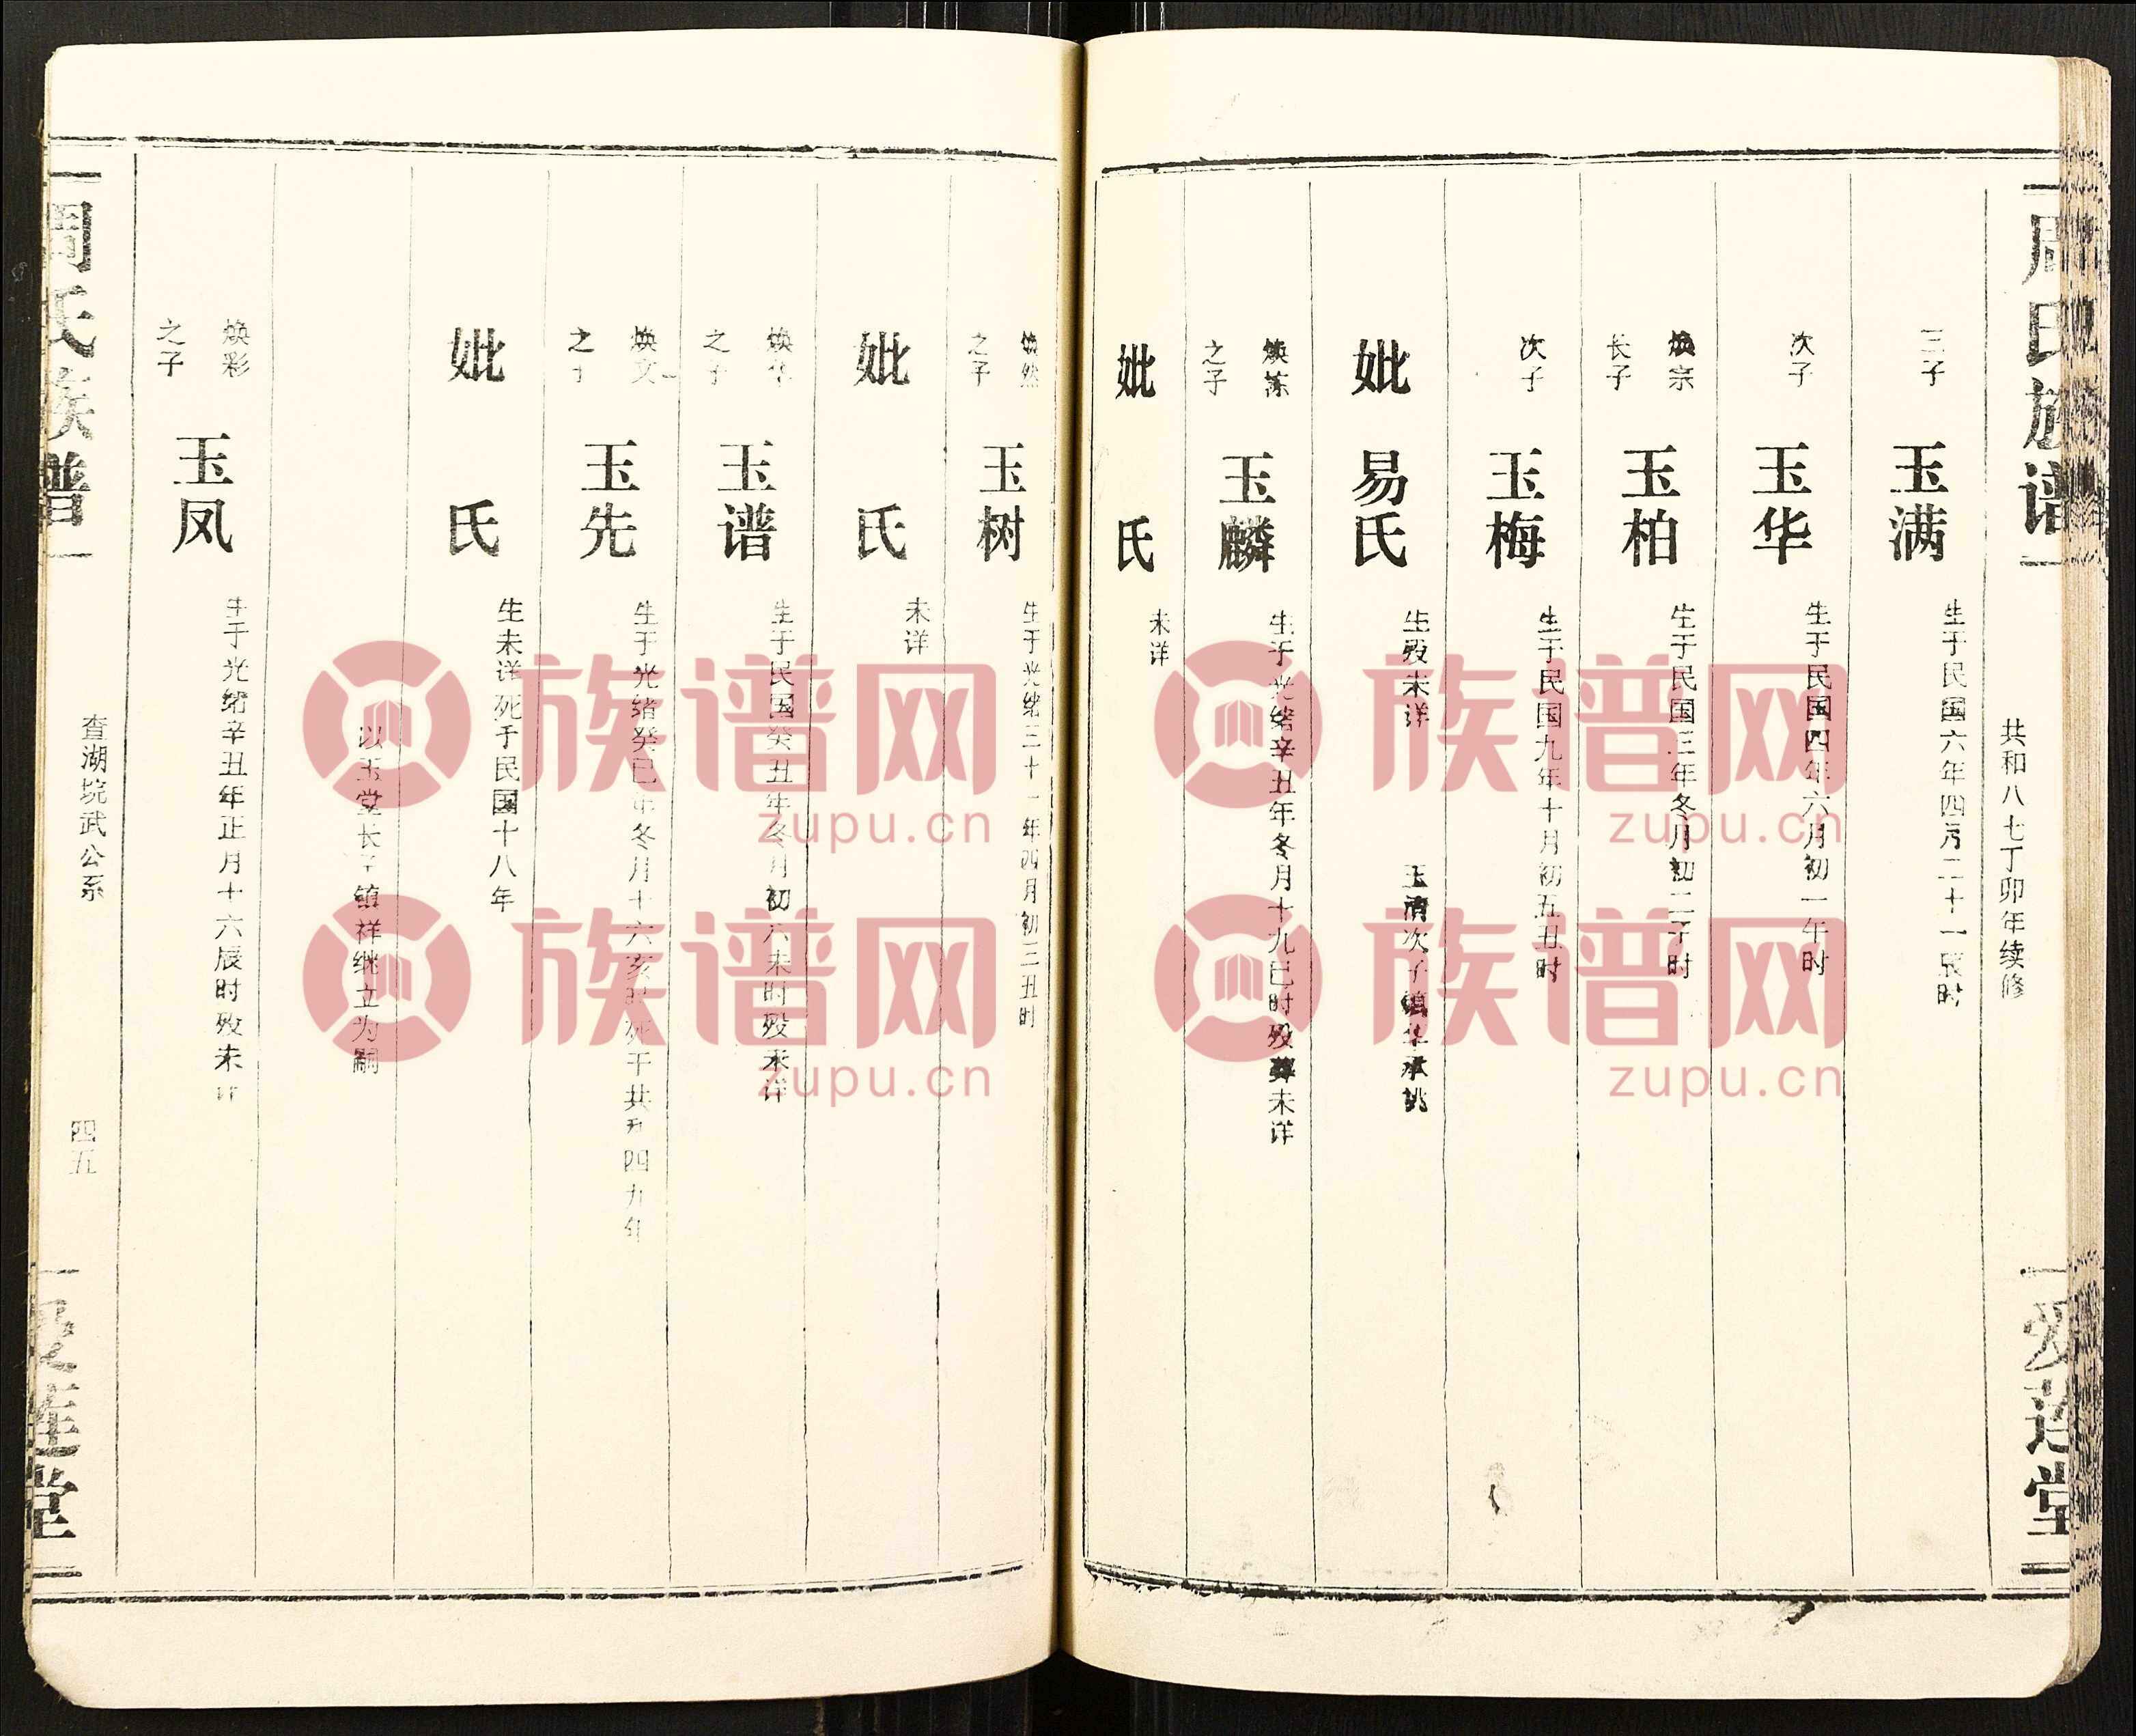 周氏族谱
共和八七丁卯年续修
爱莲堂
三子
玉满
生于民国六年四月二十一辰时
次子
玉华
生于民国四年六月初一午时
焕宗
长子
玉柏
生于民国三年冬月初二子时
次子
玉梅
生于民国九年十月初五丑时
妣 易氏
生殁未详
玉清次子镇华承祧
之子
玉麟
生于光绪辛丑年冬月十九巳时殁葬未详
妣 氏
未详
焕然
之子
玉树
生于光绪三十一年四月初三丑时
妣 氏
未详
焕华
之子
玉谱
生于民国癸丑年冬月初六未时殁未详
焕文
之子
玉先
生于光绪癸巳年冬月十六亥时死于共和四九年
妣 氏
生未详死于民国十八年
以玉堂长子镇祥继立为嗣
焕彩
之子
玉凤
生于光绪辛丑年正月十六辰时殁未详
周氏族谱
查湖垸武公系
四五
爱莲堂
族谱网
zupu.cn
族谱网
zupu.cn
族谱网
zupu.cn
族谱网
zupu.cn